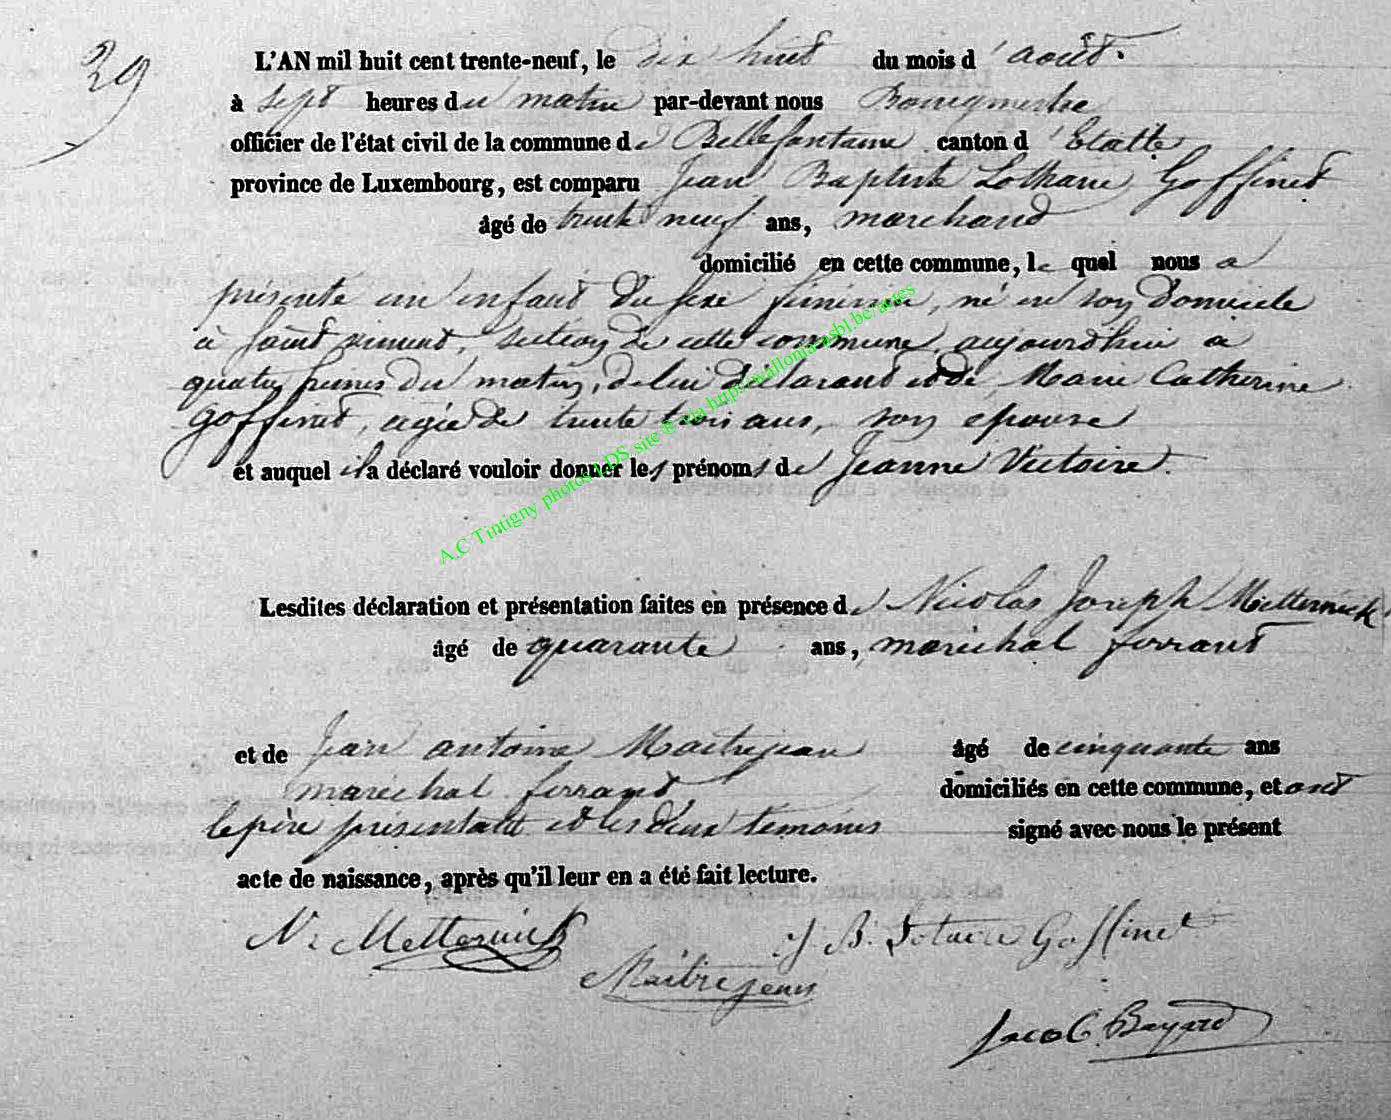 29
L'AN mil huit cent trente-neuf, le dix huit du mois d'août.
à sept heures du matin par-devant nous Bourgmestre
officier de l'état civil de la commune de Bellefontaine canton d'Etalle
province de Luxembourg, est comparu Jean Baptiste Lothaire Goffinet
âgé de trente neuf ans, marchand
domicilié en cette commune, le quel nous a
présenté un enfant du sexe féminin, né en son domicile
à Saint vincent, section de cette commune, aujourd'hui à
quatre heures du matin, de lui déclarant et de Marie Catherine
Goffinet, agée de trente trois ans, son épouse
et auquel il a déclaré vouloir donner les prénoms de Jeanne Victoire.
A.C Tintigny photos LDS site & via http://wallonia-asbl.be/actes
Lesdites déclaration et présentation faites en présence de Nicolas Joseph Metternick
âgé de quarante ans, maréchal ferrant
et de Jean antoine Maitrejean âgé de cinquante ans
maréchal ferrant domiciliés en cette commune, et ont
le père présentant et les deux témoins signé avec nous le présent
acte de naissance, après qu'il leur en a été fait lecture.
N. Metternick J. B. Lotaire Goffinet
Maitrejean
Jacob Bayard